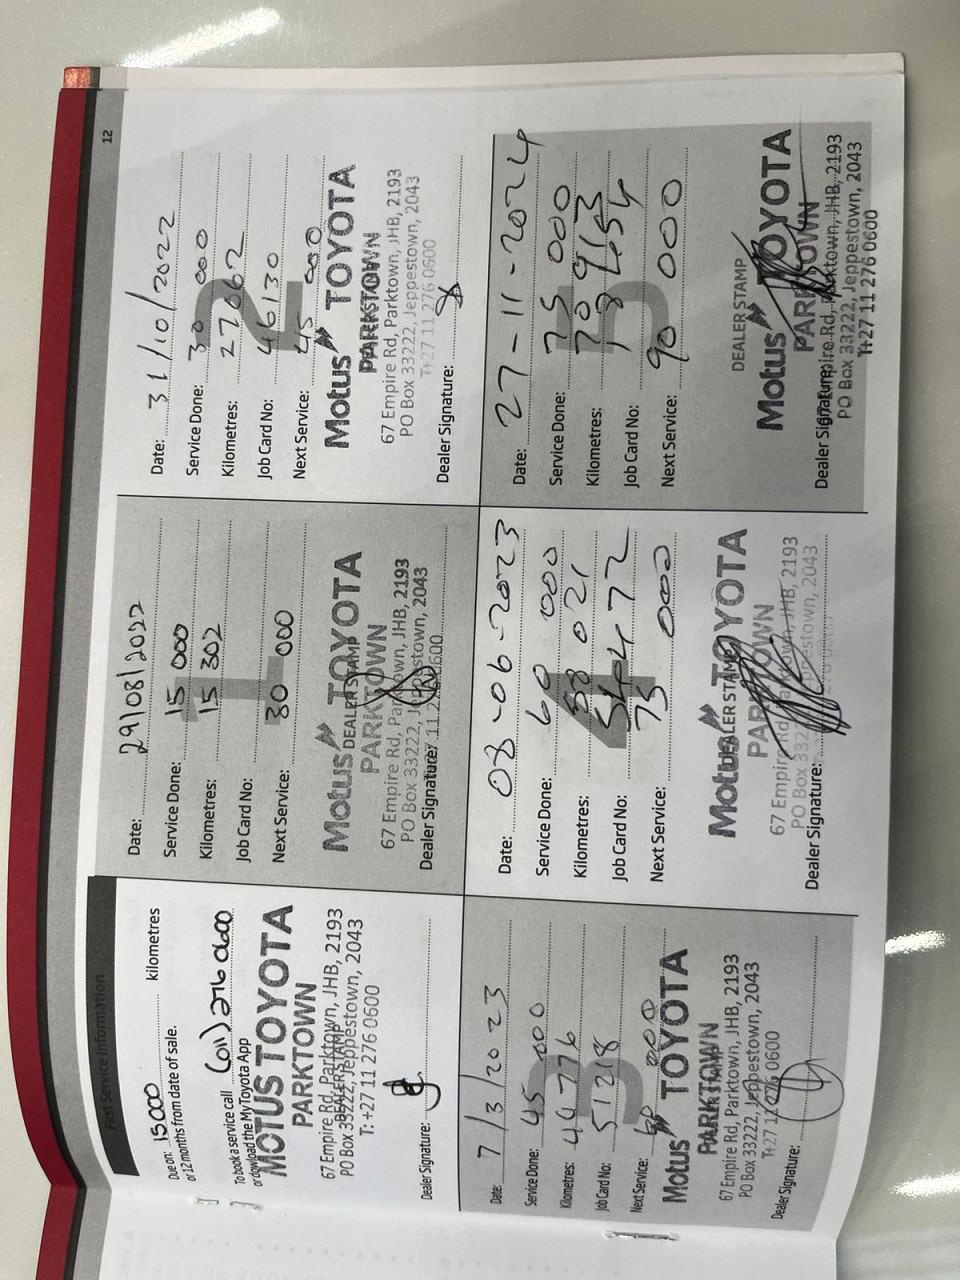 12
First Service Information
Due on: 15000 kilometres
or 12 months from date of sale.
To book a service call (011) 276 0600
or download the MyToyota App
MOTUS TOYOTA
PARKTOWN
67 Empire Rd, Parktown, JHB, 2193
DEALER STAMP
PO Box 33222, Jeppestown, 2043
T: +27 11 276 0600
Dealer Signature:
1
Date: 29/08/2022
Service Done: 15 000
Kilometres: 15 302
Job Card No:
Next Service: 30 000
Motus TOYOTA
DEALER STAMP
PARKTOWN
67 Empire Rd, Parktown, JHB, 2193
PO Box 33222, Jeppestown, 2043
Dealer Signature:
2
Date: 31/10/2022
Service Done: 30 000
Kilometres: 27062
Job Card No: 46130
Next Service: 45 000
Motus TOYOTA
PARKTOWN
67 Empire Rd, Parktown, JHB, 2193
PO Box 33222, Jeppestown, 2043
T+27 11 276 0600
Dealer Signature:
3
Date: 7/3/2023
Service Done: 45 000
Kilometres: 44776
Job Card No: 51218
Next Service: 60 000
Motus TOYOTA
PARKTOWN
67 Empire Rd, Parktown, JHB, 2193
PO Box 33222, Jeppestown, 2043
T+27 11 276 0600
Dealer Signature:
4
Date: 08-06-2023
Service Done: 60 000
Kilometres: 58 021
Job Card No: 54472
Next Service: 75 000
Motus TOYOTA
DEALER STAMP
PARKTOWN
67 Empire Rd, Parktown, JHB, 2193
PO Box 33222, Jeppestown, 2043
Dealer Signature:
5
Date: 27-11-2024
Service Done: 75 000
Kilometres: 70 963
Job Card No:
Next Service: 90 000
DEALER STAMP
Motus TOYOTA
PARKTOWN
67 Empire Rd, Parktown, JHB, 2193
PO Box 33222, Jeppestown, 2043
T+27 11 276 0600
Dealer Signature: